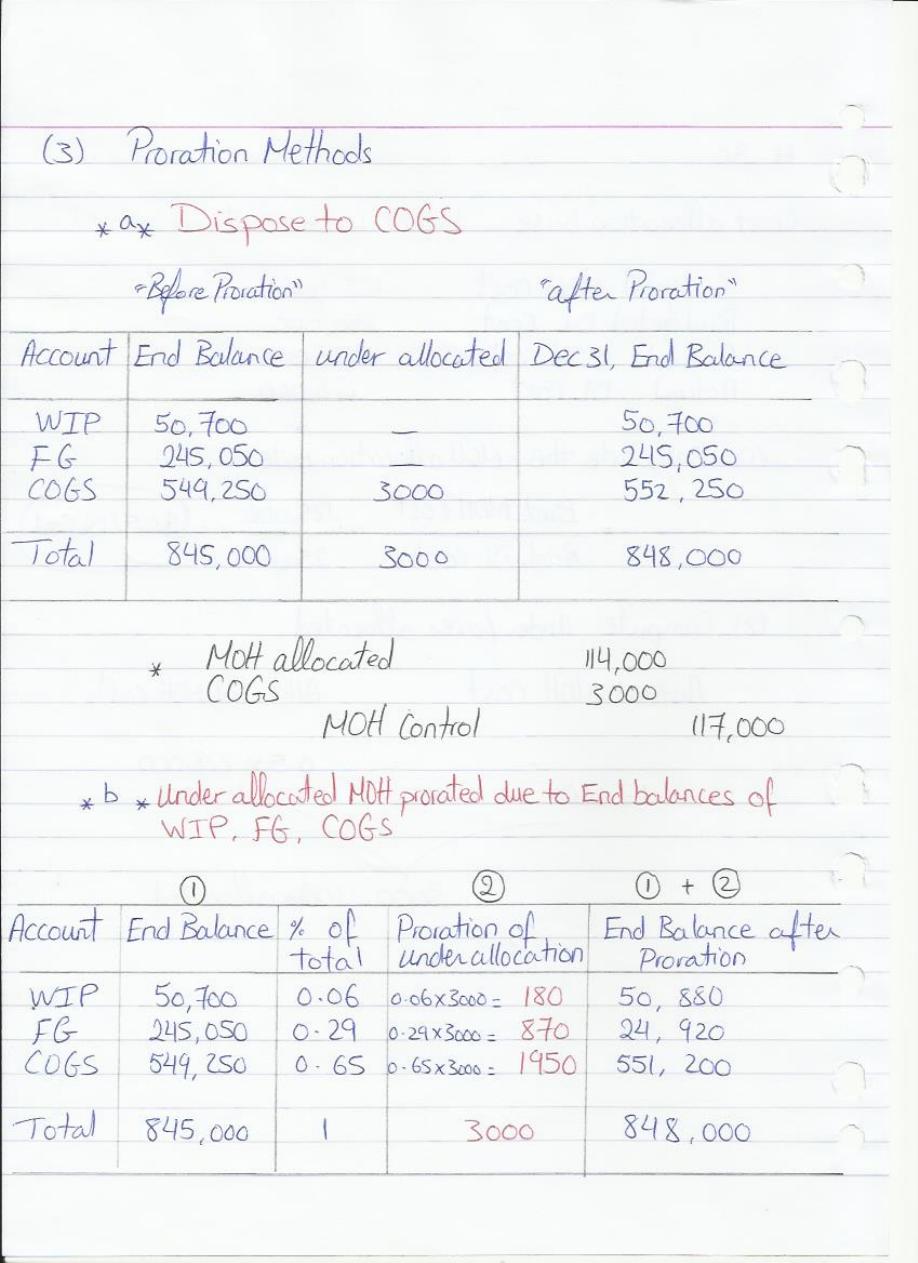 (3) Proration Methods
* a * Dispose to COGS
"Before Proration" "after Proration"
Account End Balance under allocated Dec 31, End Balance
WIP 50,700 — 50,700
FG 245,050 — 245,050
COGS 549,250 3000 552,250
Total 845,000 3000 848,000
* MOH allocated 114,000
COGS 3000
MOH Control 117,000
* b * Under allocated MOH prorated due to End balances of
WIP, FG, COGS
① ② ① + ②
Account End Balance % of Proration of End Balance after
total underallocation Proration
WIP 50,700 0.06 0.06x3000 = 180 50, 880
FG 245,050 0.29 0.29x3000 = 870 24, 920
COGS 549,250 0.65 0.65x3000 = 1950 551, 200
Total 845,000 1 3000 848,000